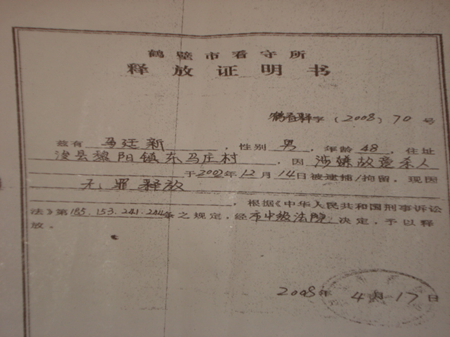 鹤壁市看守所
释放证明书
鹤看释字（2008）70号
兹有马廷新，性别男，年龄48，住址
浚县黎阳镇东马庄村，因涉嫌故意杀人
于2002年12月14日被逮捕/拘留，现因
无罪释放
，根据《中华人民共和国刑事诉讼
法》第 之规定，经市中级法院决定，予以释
放。
2008年4月17日